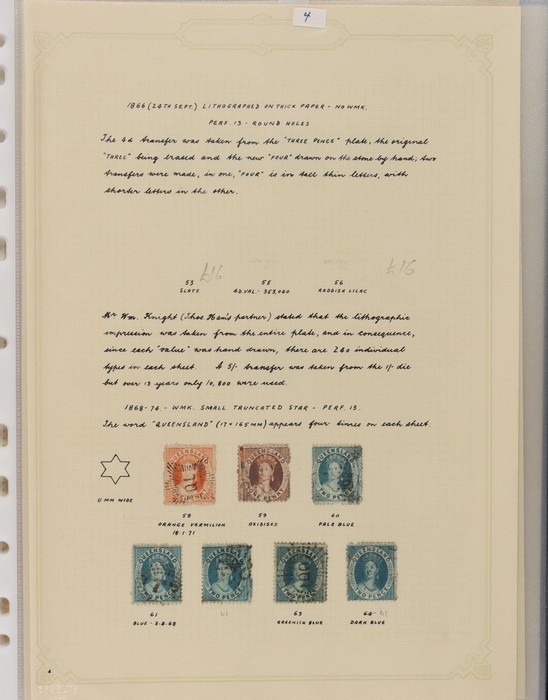 4
1866 (24TH SEPT.) LITHOGRAPHED ON THICK PAPER - NO WMK.
PERF. 13 - ROUND HOLES
The 4d transfer was taken from the "THREE PENCE" plate, the original
"THREE" being erased and the new "FOUR" drawn on the stone by hand; two
transfers were made, in one, "FOUR" is in tall thin letters, with
shorter letters in the other.
£16 £16
53 55 56
SLATE 4D. VAL - 353,060 REDDISH LILAC
Mr Wm. Knight (Thos. Ham's partner) stated that the lithographic
impression was taken from the entire plate, and in consequence,
since each "value" was hand drawn, there are 240 individual
types in each sheet. A 5/- transfer was taken from the 1/- die
but over 13 years only 10,800 were used.
1868-78 - WMK. SMALL TRUNCATED STAR - PERF. 13.
The word "QUEENSLAND" (17 x 165 MM) appears four times on each sheet.
QUEENSLAND QUEENSLAND QUEENSLAND
TWO PENCE
11 MM WIDE
59 59 60
ORANGE VERMILION OXIDISED PALE BLUE
18-1-71
QUEENSLAND QUEENSLAND QUEENSLAND QUEENSLAND
TWO PENCE TWO PENCE TWO PENCE TWO PENCE
61 61 63 64 61
BLUE - 3-8-68 GREENISH BLUE DARK BLUE
4